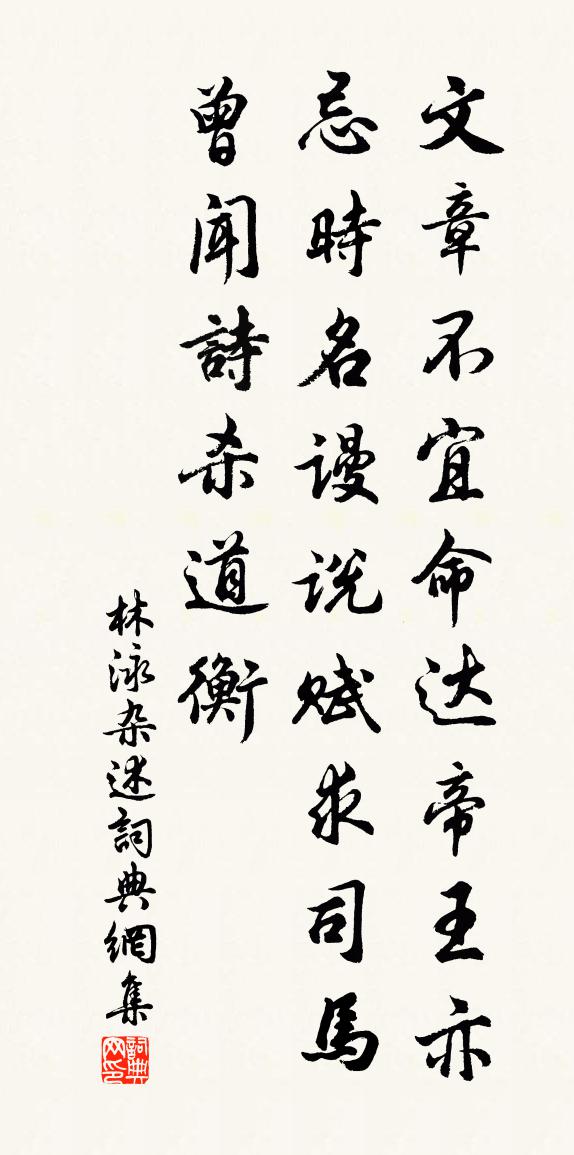 文章不宜命达帝王亦
忌時名谩说赋求司馬
曾闻詩杀道衡
林泳杂述詞典網集
詞典网印